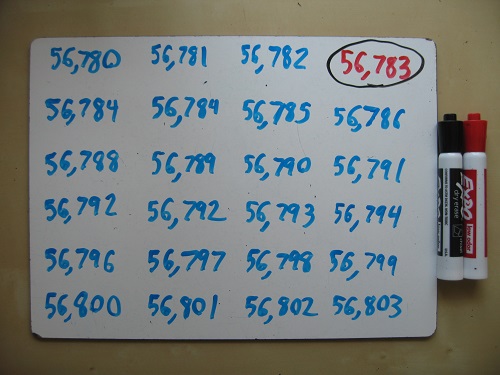 56,780 56,781 56,782 56,783
56,784 56,784 56,785 56,786
56,788 56,789 56,790 56,791
56,792 56,792 56,793 56,794
56,796 56,797 56,798 56,799
56,800 56,801 56,802 56,803
EXPO
dry erase